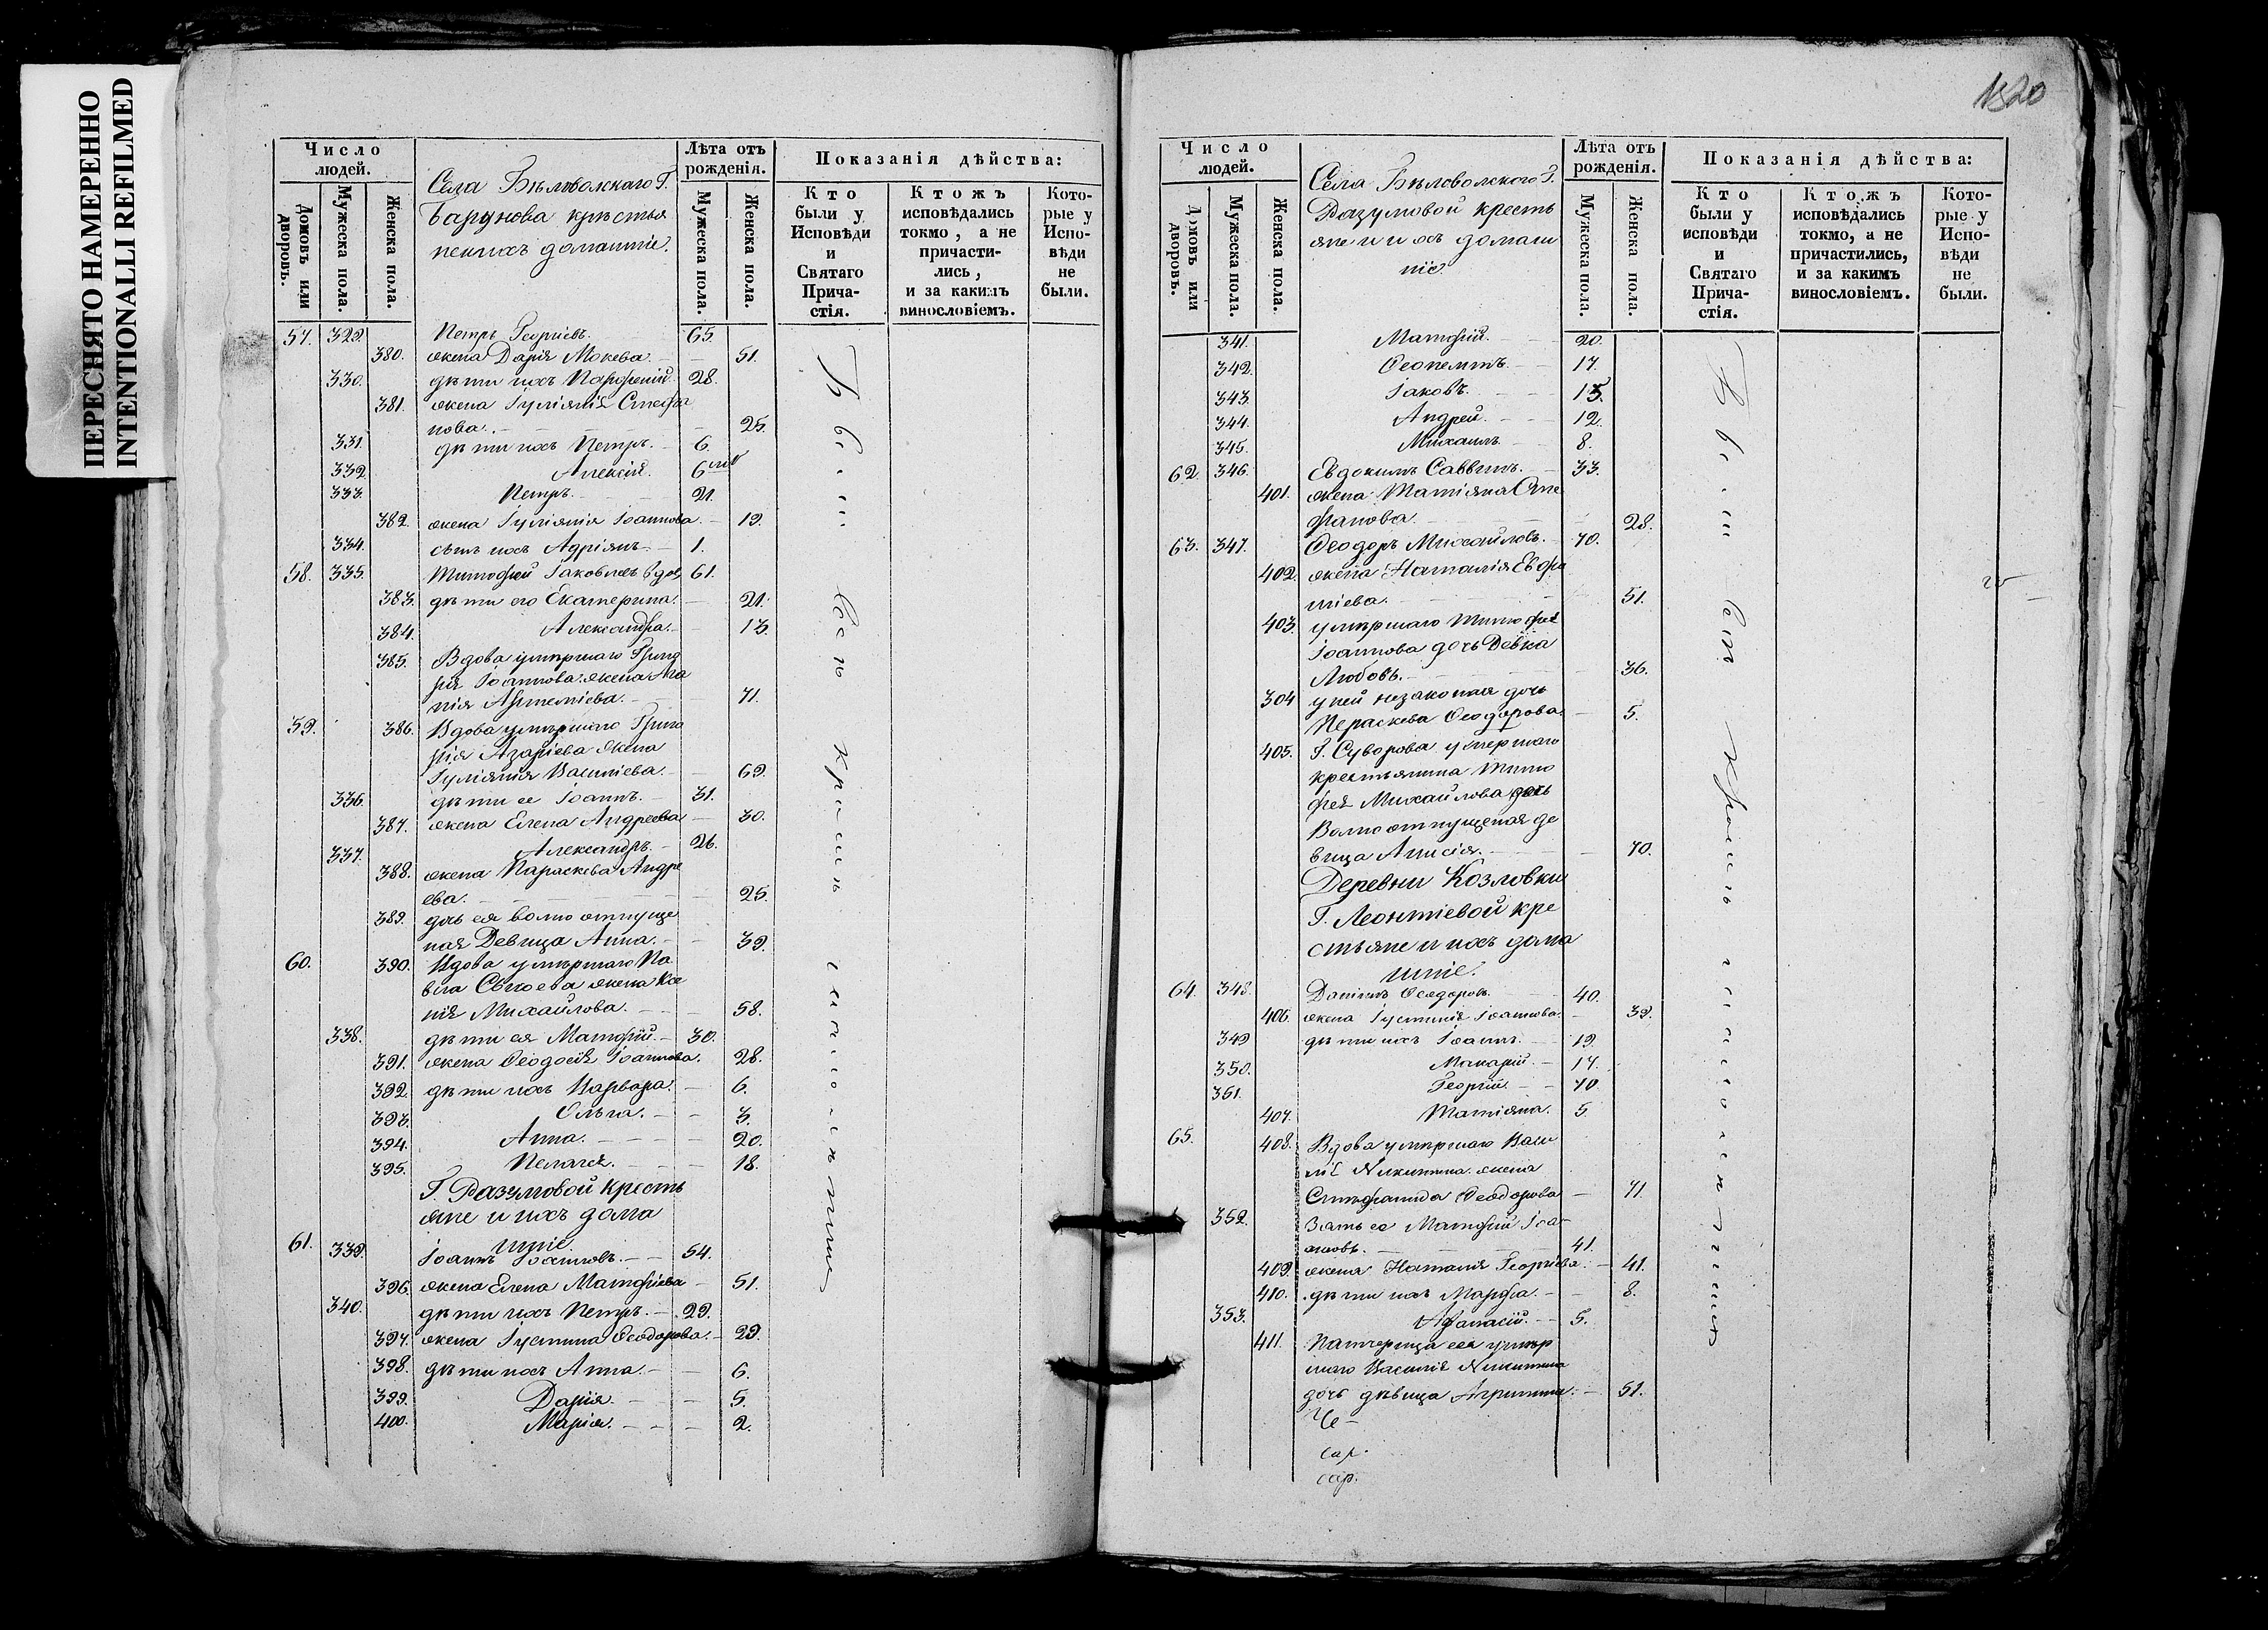 ПЕРЕСНЯТО НАМЕРЕННО
INTENTIONALLI REFILMED
Число людей.
Домовъ или дворовъ.
Мужеска пола.
Женска пола.
Села Бѣловолскаго Г.
Барунова кръстья
не ихъ домашніе.
Лѣта отъ рожденія.
Мужеска пола.
Женска пола.
Показанія дѣйства:
Кто были у Исповѣди и Святаго Причастія.
Ктожъ исповѣдались токмо, а не причастились, и за какимъ винословіемъ.
Которые у Исповѣди не были.
57. 329. Петръ Георгіевъ. 65.
380. жена Дарія Мокева. 51.
330. дѣти ихъ Парфеній 28.
381. жена Іуліянія Стефа
нова. 25.
331. дѣти ихъ Петръ. 6.
332. Алексій. 6
333. Петръ. 21.
382. жена Іуліянія Іоаннова. 19.
334. сынъ ихъ Адріянъ. 1.
58. 335. Тимофей Іаковлевъ вдов 61.
383. дѣти его Екатерина. 21.
384. Александра. 13.
385. Вдова умършаго
Іоаннова жена
Артеміева. 71.
59. 386. Вдова умършаго Григо
рія Азаріева жена
Іуліянія Василіева. 69.
336. дѣти ее Іоаннъ. 31.
387. жена Елена Андреева 30.
337. Александръ. 26.
388. жена Параскева Андре
ева. 25.
389. дочь ея волно отпуще
ная Девица Анна. 39.
60. 390. Вдова умършаго Па
вла жена Ксе
нія Михайлова. 58.
338. дѣти ея Матфій. 30.
391. жена Феодосія Іоаннова. 28.
392. дѣти ихъ Варвара. 6.
393. Олга. 3.
394. Анна. 20.
395. Пелагея. 18.
Г. Разумовой кресть
яне и ихъ дома
шніе.
61. 339. Іоаннъ Іоанновъ. 54.
396. жена Елена Матфіева 51.
340. дѣти ихъ Петръ. 29.
397. жена Іустина Феодорова. 29.
398. дѣти ихъ Анна. 6.
399. Дарія. 5.
400. Марія. 2.
Число людей.
Домовъ или дворовъ.
Мужеска пола.
Женска пола.
Села Бѣловолского Г.
Разумовой кресть
яне и ихъ домаш
ніе
Лѣта отъ рожденія.
Мужеска пола.
Женска пола.
Показанія дѣйства:
Кто были у исповѣди и Святаго Причастія.
Ктожъ исповѣдались токмо, а не причастились, и за какимъ винословіемъ.
Которые у Исповѣди не были.
341. Матфій. 20.
342. Феопемтъ. 17.
343. Іаковъ. 15.
344. Андрей. 12.
345. Михаилъ 8.
62. 346. Евдокимъ Саввинъ. 33.
401. жена Татіяна Сте
фанова. 28.
63. 347. Феодоръ Михайловъ. 70.
402. жена Наталія Евфи
міева. 51.
403. умършаго Тимофея
Іоаннова дочь Девка
Любовь. 36.
304 у ней незаконная дочь
Пераскева Феодорова. 5.
405. Г. Суворова умершаго
крестьянина Тимо
фея Михайлова дочь
Волно отпущеная де
вица Анисія. 70.
Деревни Козловки
Г. Леонтіевой кре
стьяне и ихъ дома
шніе.
64. 348. Даніилъ Феодоровъ. 40.
406. жена Іустинія Іоаннова. 39.
349 дѣти ихъ Іоаннъ. 19.
350. Макарій. 17.
351. Георгій. 10.
407. Татіяна. 5.
65. 408. Вдова умършаго Васи
лія Никитина жена
Стефанида Феодорова 71.
352. Зять ее Матфій Іоа
нновъ. 41.
409. жена Наталія Георгіева. 41.
410. дѣти ихъ Марфа. 8.
353. Афанасій. 5.
411. Патчерица ея умър
шаго Василія Никитина
дочь дѣвица Агрипина. 51.